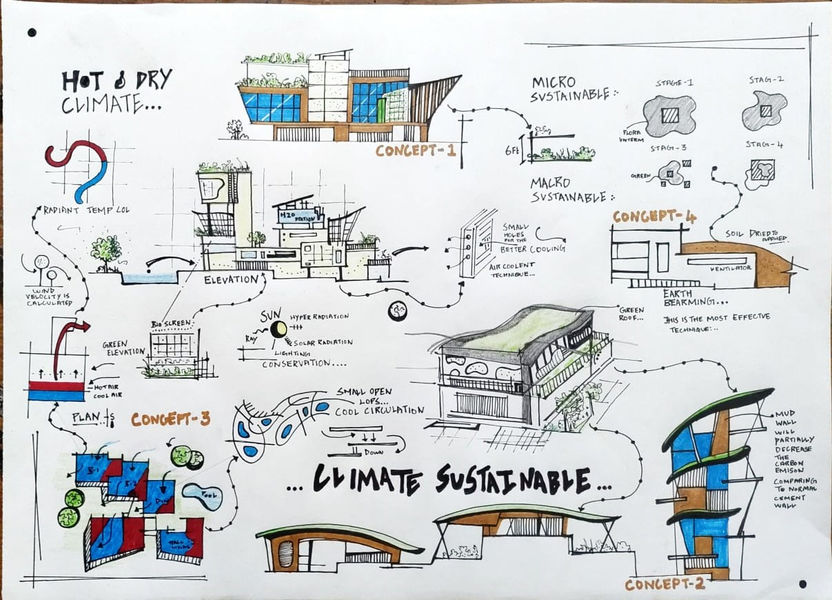 HOT & DRY
CLIMATE...
CONCEPT-1
MICRO
SUSTAINABLE:-
6FT
STAGE-1
STAG-2
FLORA
STAGE-3
STAG-4
GREEN
MACRO
SUSTAINABLE:-
CONCEPT-4
SOIL DRIED TO
VENTILATOR
EARTH
BEARMING...
THIS IS THE MOST EFFECTIVE
TECHNIQUE:..
RADIANT TEMP COL
WIND
VELOCITY IS
CALCULATED
H20
ELEVATION
SMALL
HOLES
FOR THE
BETTER COOLING
AIR COOLENT
TECHNIQUE...
BIO SCREEN:
GREEN
ELEVATION
SUN
HYPER RADIATION
RAY
SOLAR RADIATION
LIGHTING
CONSERVATION....
GREEN
ROOF...
HOT AIR
COOL AIR
PLAN
CONCEPT-3
SMALL OPEN
LOPS...
COOL CIRCULATION
DOWN
POOL
MUD
WALL
WILL
PARTIALLY
DECREASE
THE
CARBON
EMISON
COMPARING
TO NORMAL
CEMENT
WALL
... CLIMATE SUSTAINABLE...
CONCEPT-2